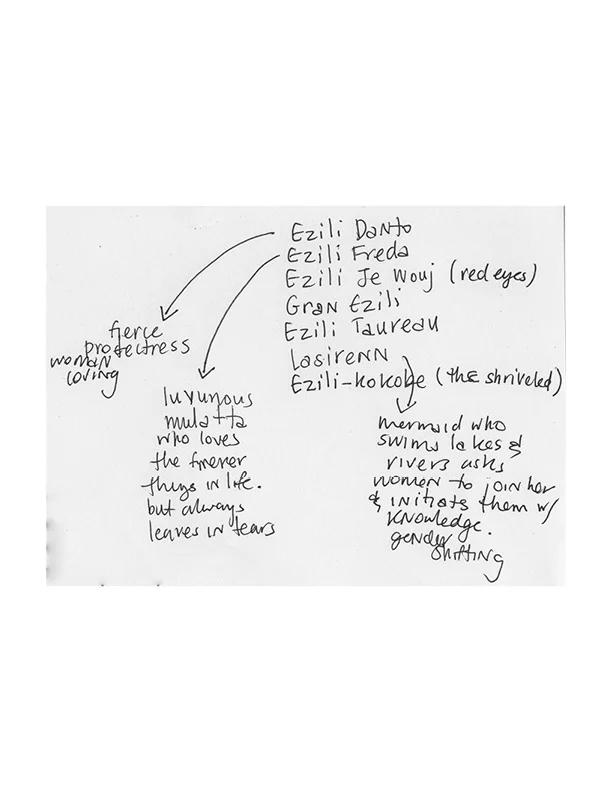 Ezili Danto
Ezili Freda
Ezili Je Wouj (red eyes)
Gran Ezili
Ezili Taureau
Lasirenn
Ezili-Kokobe (the shriveled)
fierce
protectress
woman
loving
luxurious
mulatta
who loves
the finerer
things in life.
but always
leaves in tears
mermaid who
swims lakes &
rivers asks
women to join her
& initiats them w/
knowledge.
gender
shifting